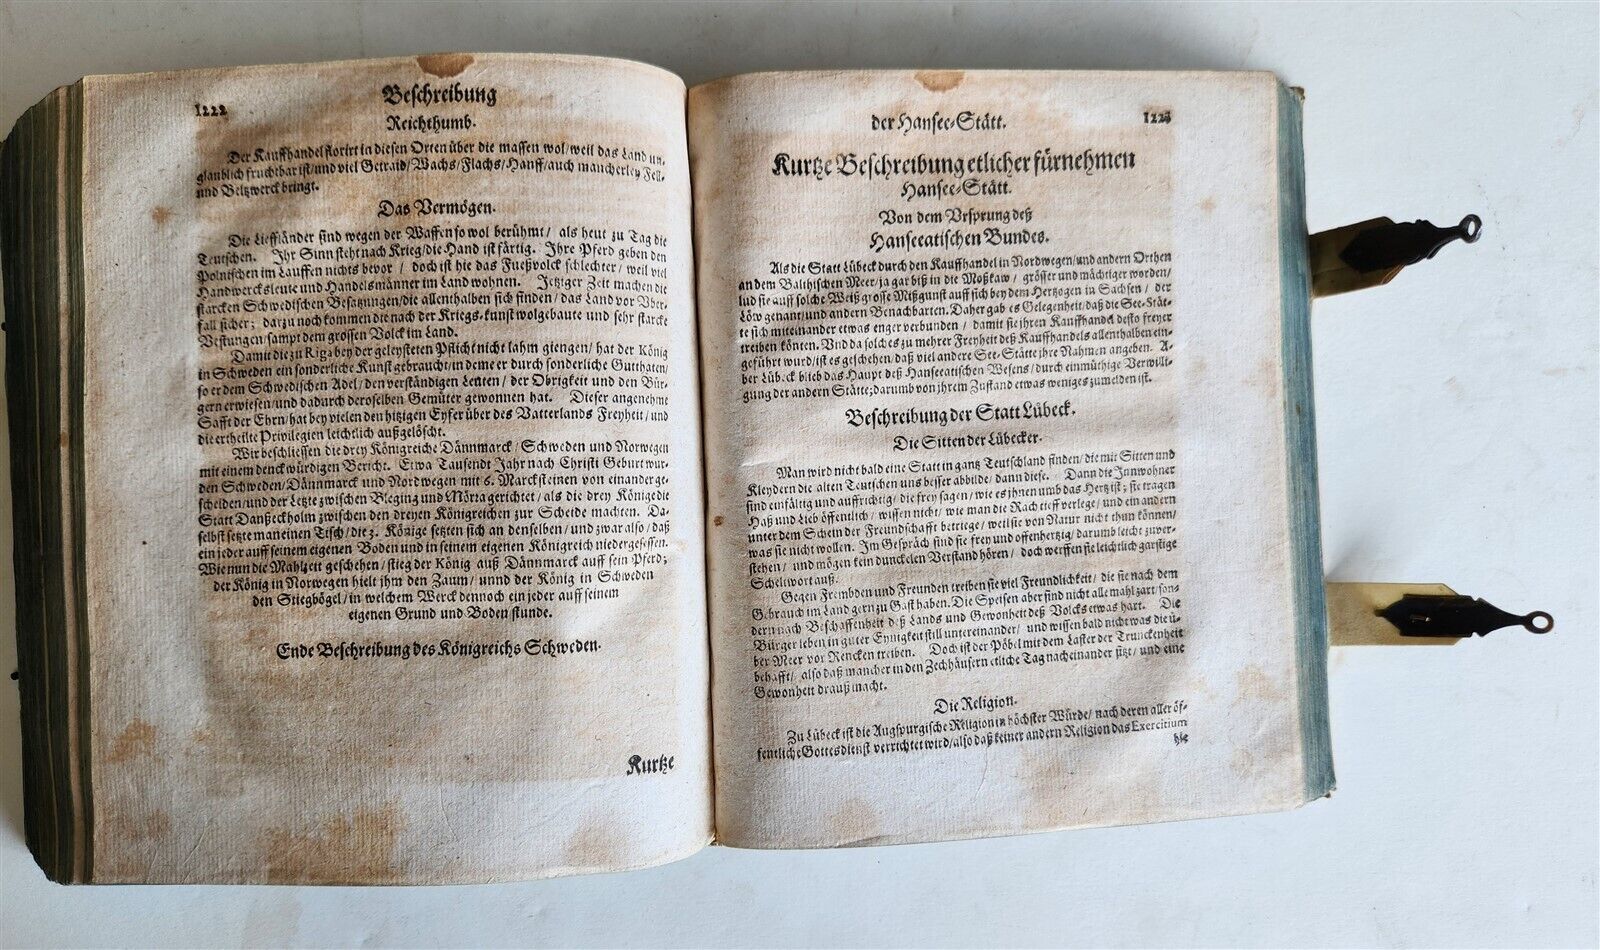 1222
Beschreibung
Reichthumb.
Der Kauffhandel florirt in diesen Orten über die massen wol/weil das Land un-
glaublich fruchtbar ist/und viel Getraid/Wachs/Flachs/Hanff/auch mancherley Fell-
und Beltzwerck bringt.
Das Vermögen.
Die Lieffländer sind wegen der Waffen so wol berühmt/ als heut zu Tag die
Teutschen. Ihr Sinn steht nach Krieg/die Hand ist färtig. Ihre Pferd geben den
Polnischen im Lauffen nichts bevor / doch ist hie das Fueßvolck schlechter/ weil viel
Handwercksleute und Handelsmänner im Land wohnen. Jetziger Zeit machen die
starcken Schwedischen Besatzungen/die allenthalben sich finden/das Land vor Uber-
fall sicher; darzu noch kommen die nach der Kriegs-kunst wolgebaute und sehr starcke
Vestungen/sampt dem grossen Volck im Land.
Damit die zu Riga bey der geleysteten Pflicht nicht lahm giengen/hat der König
in Schweden ein sonderliche Kunst gebraucht/in deme er durch sonderliche Gutthaten/
so er dem Schwedischen Adel/den verständigen Leuten / der Obrigkeit und den Bür-
gern erwiesen/und dadurch deroselben Gemüter gewonnen hat. Dieser angenehme
Safft der Ehrn/hat bey vielen den hitzigen Eyfer über des Vatterlands Freyheit/und
die ertheilte Privilegien leichtlich außgelöscht.
Wir beschliessen die drey Königreiche Dännmarck/Schweden und Norwegen
mit einem denckwürdigen Bericht. Etwa Tausendt Jahr nach Christi Geburt wur-
den Schweden/Dännmarck und Norwegen mit 6. Marcksteinen von einander ge-
scheiden/und der Letzte zwischen Bleging und Möra gerichtet/als die drey Könige die
Statt Danßeckholm zwischen den dreyen Königreichen zur Scheide machten. Da-
selbst setzte man einen Tisch/die 3. Könige setzten sich an denselben/und zwar also/daß
ein jeder auff seinem eigenen Boden und in seinem eigenen Königreich niedergesessen.
Wie nun die Mahlzeit geschehen/stieg der König auß Dännmarck auff sein Pferd;
der König in Norwegen hielt jhm den Zaum/ unnd der König in Schweden
den Stiegbögel/in welchem Werck dennoch ein jeder auff seinem
eigenen Grund und Boden stunde.
Ende Beschreibung des Königreichs Schweden.
Kurtze
der Hansee-Stätt.
1223
Kurtze Beschreibung etlicher fürnehmen
Hansee-Stätt.
Von dem Vrsprung deß
Hanseeatischen Bundes.
Als die Statt Lübeck durch den Kauffhandel in Nordwegen/und andern Orthen
an dem Balthischen Meer/ja gar biß in die Moßkaw / grösser und mächtiger worden/
lud sie auff solche Weiß grosse Mißgunst auff sich bey dem Hertzogen in Sachsen / der
Löw genant/und andern Benachbarten. Daher gab es Gelegenheit/daß die See-Stät-
te sich miteinander etwas enger verbunden / damit sie jhren Kauffhandel desto freyer
treiben könten. Vnd da solches zu mehrer Freyheit deß Kauffhandels allenthalben ein-
geführt wurd/ist es geschehen/daß viel andere See-Stätte jhre Nahmen angeben. A-
ber Lübeck blieb das Haupt deß Hanseeatischen Wesens/durch einmüthige Verwilli-
gung der andern Stätte;darumb von jhrem Zustand etwas weniges zumelden ist.
Beschreibung der Statt Lübeck.
Die Sitten der Lübecker.
Man wird nicht bald eine Statt in gantz Teutschland finden/die mit Sitten und
Kleydern die alten Teutschen uns besser abbilde/dann diese. Dann die Innwohner
sind einfältig und auffrichtig/die frey sagen/wie es jhnen umb das Hertz ist; sie tragen
Haß und Lieb öffentlich/ wissen nicht/wie man die Rach tieff verlege/und ein andern
unter dem Schein der Freundschafft betriege/weil sie von Natur nicht thun können/
was sie nicht wollen. Im Gespräch sind sie frey und offenhertzig/darumb leicht zuver-
stehen/ und mögen kein dunckelen Verstand hören/ doch werffen sie leichtlich garstige
Scheltwort auß.
Gegen Frembden und Freunden treiben sie viel Freundlichkeit/die sie nach dem
Gebrauch im Land gern zu Gast haben. Die Speisen aber sind nicht allemahl zart/son-
dern nach Beschaffenheit deß Lands und Gewonheit deß Volcks etwas hart. Die
Bürger leben in guter Eynigkeit still untereinander/ und wissen bald nicht was die ü-
ber Meer vor Rencken treiben. Doch ist der Pöbel mit dem Laster der Trunckenheit
behafft/ also daß mancher in den Zechhäusern etliche Tag nacheinander sitzt/ und eine
Gewonheit drauß macht.
Die Religion.
Zu Lübeck ist die Augspurgische Religion in höchster Würde/nach deren aller öf-
fentliche Gottesdienst verrichtet wird/also daß keiner andern Religion das Exercitium
hie